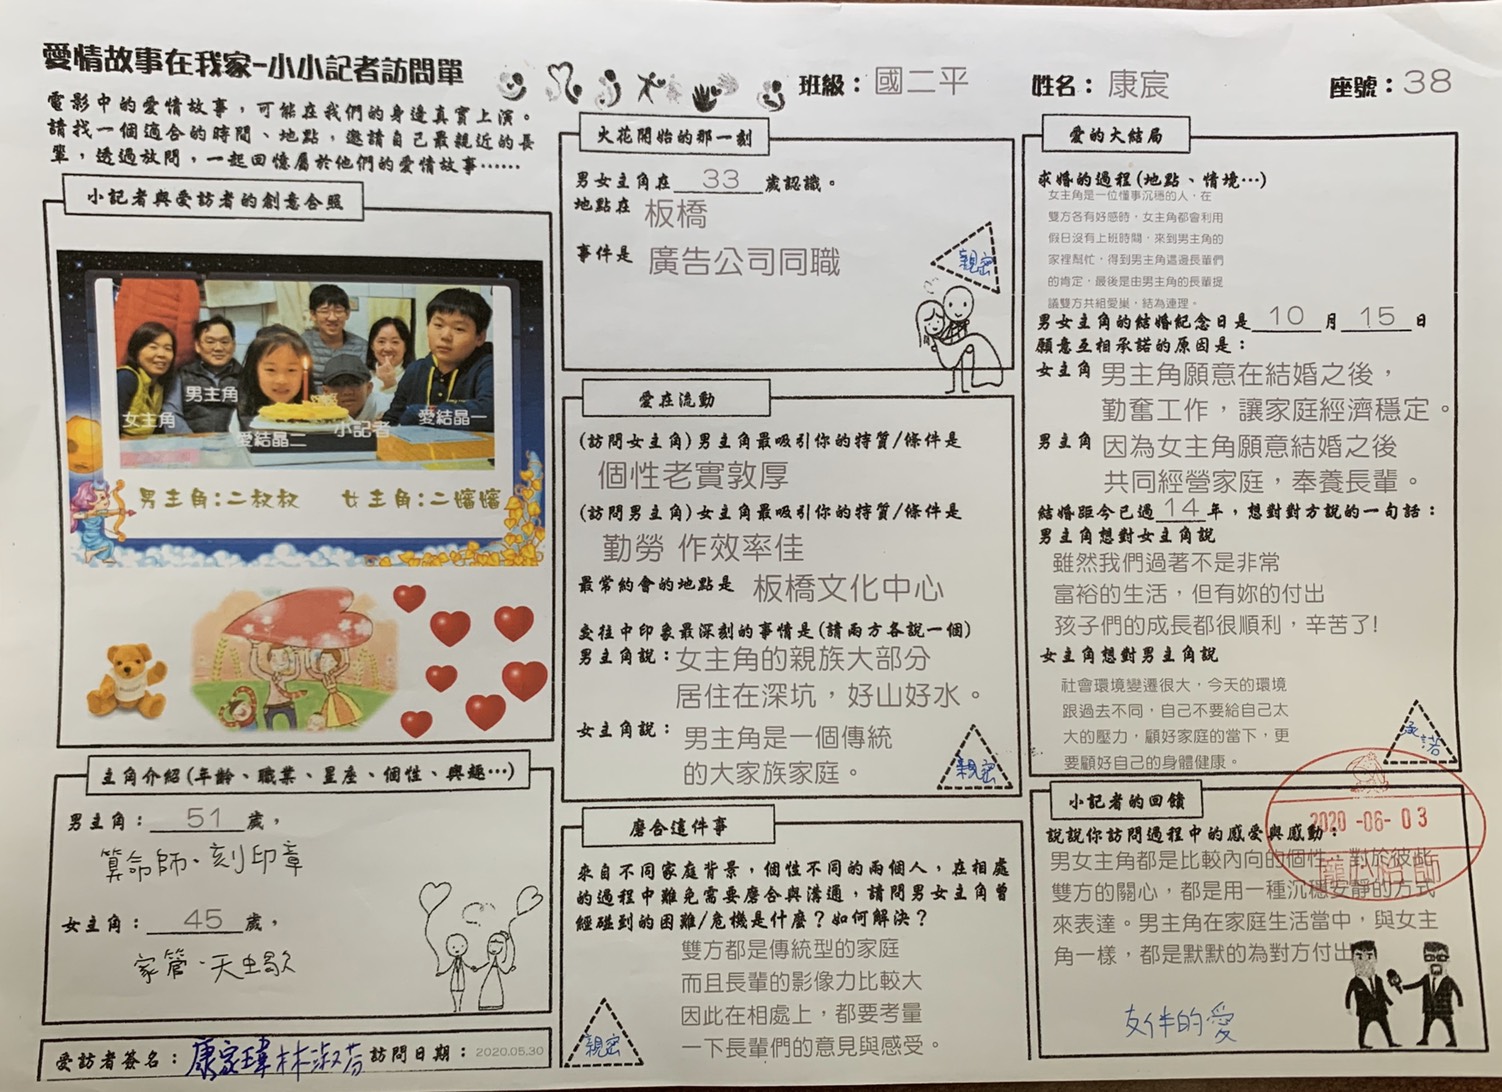 愛情故事在我家-小小記者訪問單
班級：國二平
姓名：康宸
座號：38
電影中的愛情故事，可能在我們的身邊真實上演。
請找一個適合的時間、地點，邀請自己最親近的長
輩，透過放問，一起回憶屬於他們的愛情故事……
小記者與受訪者的創意合照
男主角
女主角
愛結晶二
小記者
愛結晶一
男主角:二叔叔 女主角:二嬸嬸
主角介紹(年齡、職業、星座、個性、興趣…)
男主角：51歲，
算命師、刻印章
女主角：45歲，
家管、天蠍
受訪者簽名：康家瑋 林淑芬 訪問日期：2020.05.30
火花開始的那一刻
男女主角在33歲認識。
地點在 板橋
事件是 廣告公司同職
親密
愛在流動
(訪問女主角)男主角最吸引你的特質/條件是
個性老實敦厚
(訪問男主角)女主角最吸引你的特質/條件是
勤勞 作效率佳
最常約會的地點是 板橋文化中心
交往中印象最深刻的事情是(請兩方各說一個)
男主角說：女主角的親族大部分
居住在深坑，好山好水。
女主角說：男主角是一個傳統
的大家族家庭。
親密
磨合這件事
來自不同家庭背景，個性不同的兩個人，在相處
的過程中難免需要磨合與溝通，請問男女主角曾
經碰到的困難/危機是什麼？如何解決？
雙方都是傳統型的家庭
而且長輩的影像力比較大
因此在相處上，都要考量
一下長輩們的意見與感受。
親密
愛的大結局
求婚的過程(地點、情境…)
女主角是一位懂事沉穩的人，在
雙方各有好感時，女主角都會利用
假日沒有上班時間，來到男主角的
家裡幫忙，得到男主角這邊長輩們
的肯定，最後是由男主角的長輩提
議雙方共組愛巢，結為連理。
男女主角的結婚紀念日是10月15日
願意互相承諾的原因是：
女主角 男主角願意在結婚之後，
勤奮工作，讓家庭經濟穩定。
男主角 因為女主角願意結婚之後
共同經營家庭，奉養長輩。
結婚距今已過14年，想對對方說的一句話：
男主角想對女主角說
雖然我們過著不是非常
富裕的生活，但有妳的付出
孩子們的成長都很順利，辛苦了!
女主角想對男主角說
社會環境變遷很大，今天的環境
跟過去不同，自己不要給自己太
大的壓力，顧好家庭的當下，更
要顧好自己的身體健康。
承諾
小記者的回饋
2020 -06- 03
說說你訪問過程中的感受與感動：
男女主角都是比較內向的個性，對於彼此
雙方的關心，都是用一種沉穩安靜的方式
來表達。男主角在家庭生活當中，與女主
角一樣，都是默默的為對方付出
友伴的愛